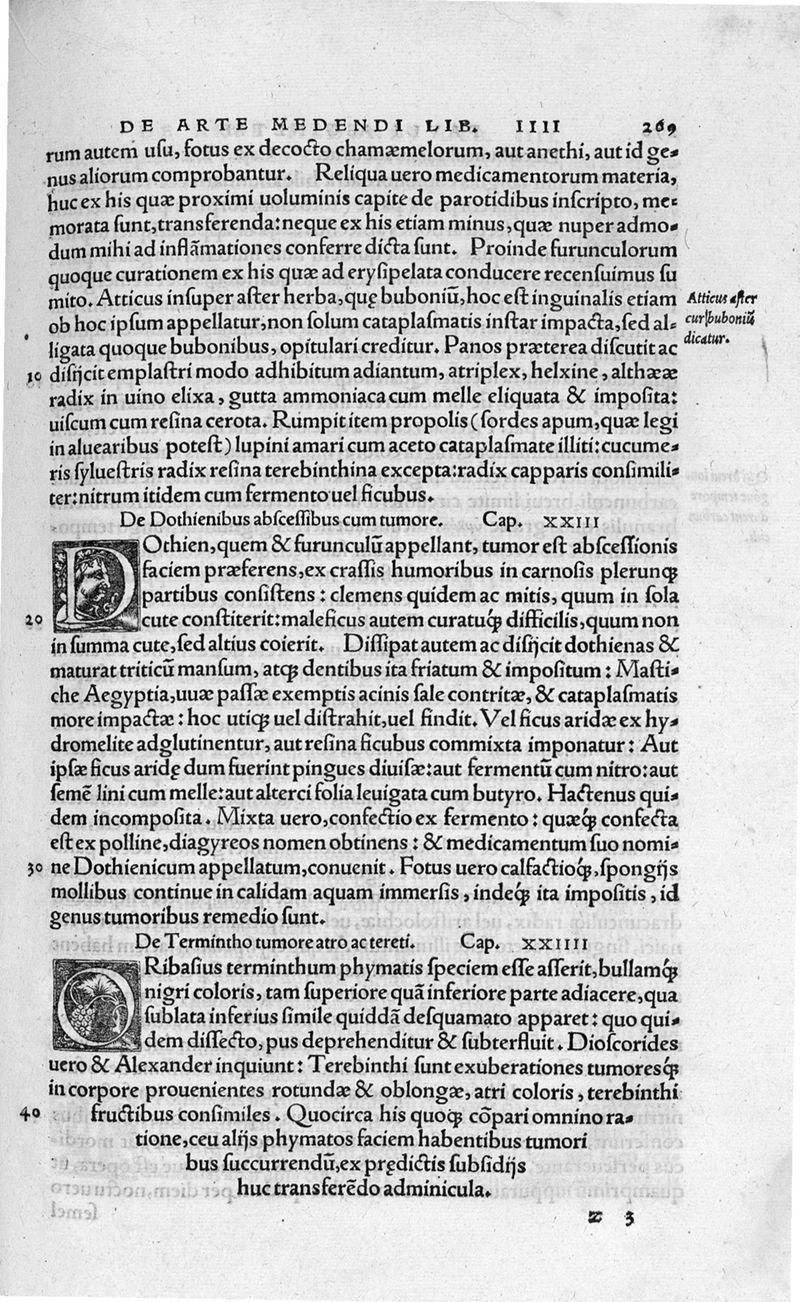 DE ARTE MEDENDI LIB. IIII 269
rum autem uſu, fotus ex decocto chamæmelorum, aut anethi, aut id ge-
nus aliorum comprobantur. Reliqua uero medicamentorum materia,
huc ex his quæ proximi uoluminis capite de parotidibus inſcripto, me-
morata ſunt, transferenda: neque ex his etiam minus, quæ nuper admo-
dum mihi ad inflãmationes conferre dicta ſunt. Proinde furunculorum
quoque curationem ex his quæ ad eryſipelata conducere recenſuimus ſu
mito. Atticus inſuper aſter herba, quę buboniũ, hoc eſt inguinalis etiam
Atticus aſter
ob hoc ipſum appellatur, non ſolum cataplaſmatis inſtar impacta, ſed al-
cur buboniũ
ligata quoque bubonibus, opitulari creditur. Panos præterea diſcutit ac
dicatur.
10 diſijcit emplaſtri modo adhibitum adiantum, atriplex, helxine, althææ
radix in uino elixa, gutta ammoniaca cum melle eliquata & impoſita:
uiſcum cum reſina cerota. Rumpit item propolis (ſordes apum, quæ legi
in aluearibus poteſt) lupini amari cum aceto cataplaſmate illiti: cucume-
ris ſylueſtris radix reſina terebinthina excepta: radix capparis conſimili-
ter: nitrum itidem cum fermento uel ficubus.
De Dothienibus abſceſſibus cum tumore. Cap. XXIII
DOthien, quem & furunculũ appellant, tumor eſt abſceſſionis
faciem præferens, ex craſſis humoribus in carnoſis plerunq́;
partibus conſiſtens: clemens quidem ac mitis, quum in ſola
20 cute conſtiterit: maleficus autem curatuq́; difficilis, quum non
in ſumma cute, ſed altius coierit. Diſſipat autem ac diſijcit dothienas &
maturat triticũ manſum, atq́; dentibus ita friatum & impoſitum: Maſti-
che Aegyptia, uuæ paſſæ exemptis acinis ſale contritæ, & cataplaſmatis
more impactæ: hoc utiq́; uel diſtrahit, uel findit. Vel ficus aridæ ex hy-
dromelite adglutinentur, aut reſina ficubus commixta imponatur: Aut
ipſæ ficus aridę dum fuerint pingues diuiſæ: aut fermentũ cum nitro: aut
ſemẽ lini cum melle: aut alterci folia leuigata cum butyro. Hactenus qui-
dem incompoſita. Mixta uero, confectio ex fermento: quæq́; confecta
eſt ex polline, diagyreos nomen obtinens: & medicamentum ſuo nomi-
30 ne Dothienicum appellatum, conuenit. Fotus uero calfactioq́;, ſpongijs
mollibus continue in calidam aquam immerſis, indeq́; ita impoſitis, id
genus tumoribus remedio ſunt.
De Termintho tumore atro ac tereti. Cap. XXIIII
ORibaſius terminthum phymatis ſpeciem eſſe aſſerit, bullamq́;
nigri coloris, tam ſuperiore quã inferiore parte adiacere, qua
ſublata inferius ſimile quiddã deſquamato apparet: quo qui-
dem diſſecto, pus deprehenditur & ſubterfluit. Dioſcorides
uero & Alexander inquiunt: Terebinthi ſunt exuberationes tumoresq́;
in corpore prouenientes rotundæ & oblongæ, atri coloris, terebinthi
40 fructibus conſimiles. Quocirca his quoq́; cõpari omnino ra-
tione, ceu alijs phymatos faciem habentibus tumori
bus ſuccurrendũ, ex prędictis ſubſidijs
huc transferẽdo adminicula.
z 3